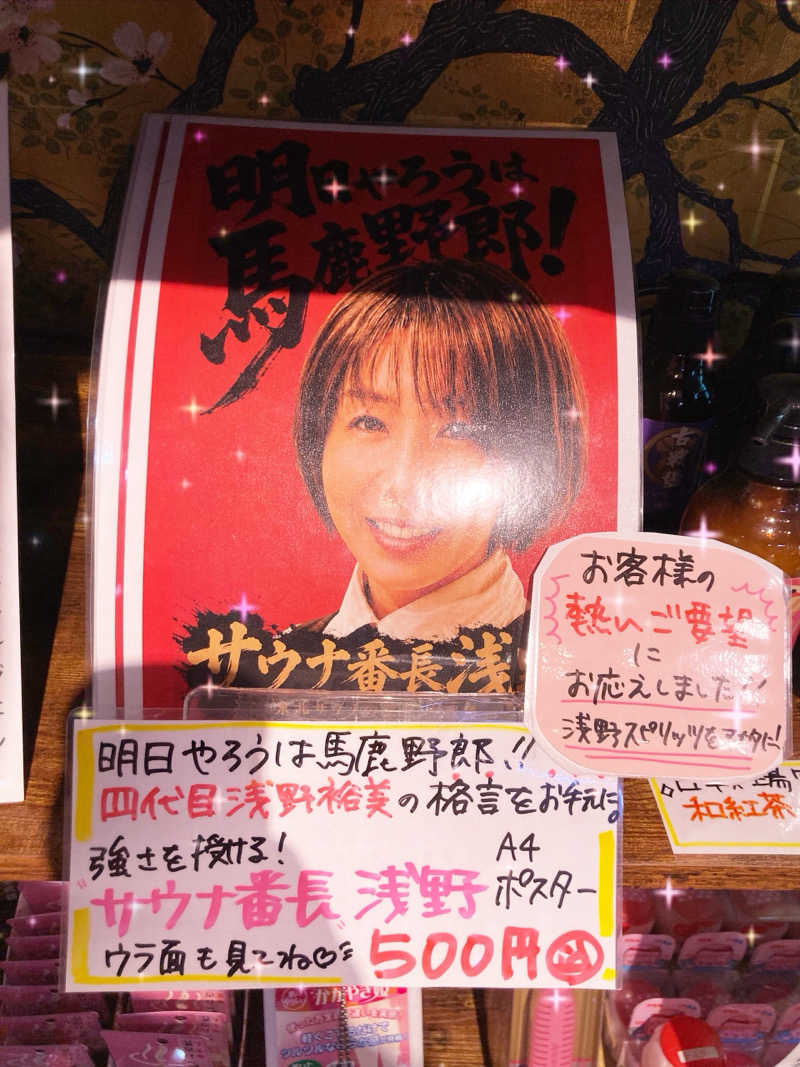 明日やろうは
馬鹿野郎！
サウナ番長 浅
お客様の
熱いご要望
に
お応えしました!!
浅野スピリッツをアナタに!
明日やろうは馬鹿野郎!!
四代目浅野裕美の格言をお手元に
強さを授ける!
"サウナ番長 浅野"
A4
ポスター
ウラ面も見てね♡
500円込
和紅茶
かかやきん